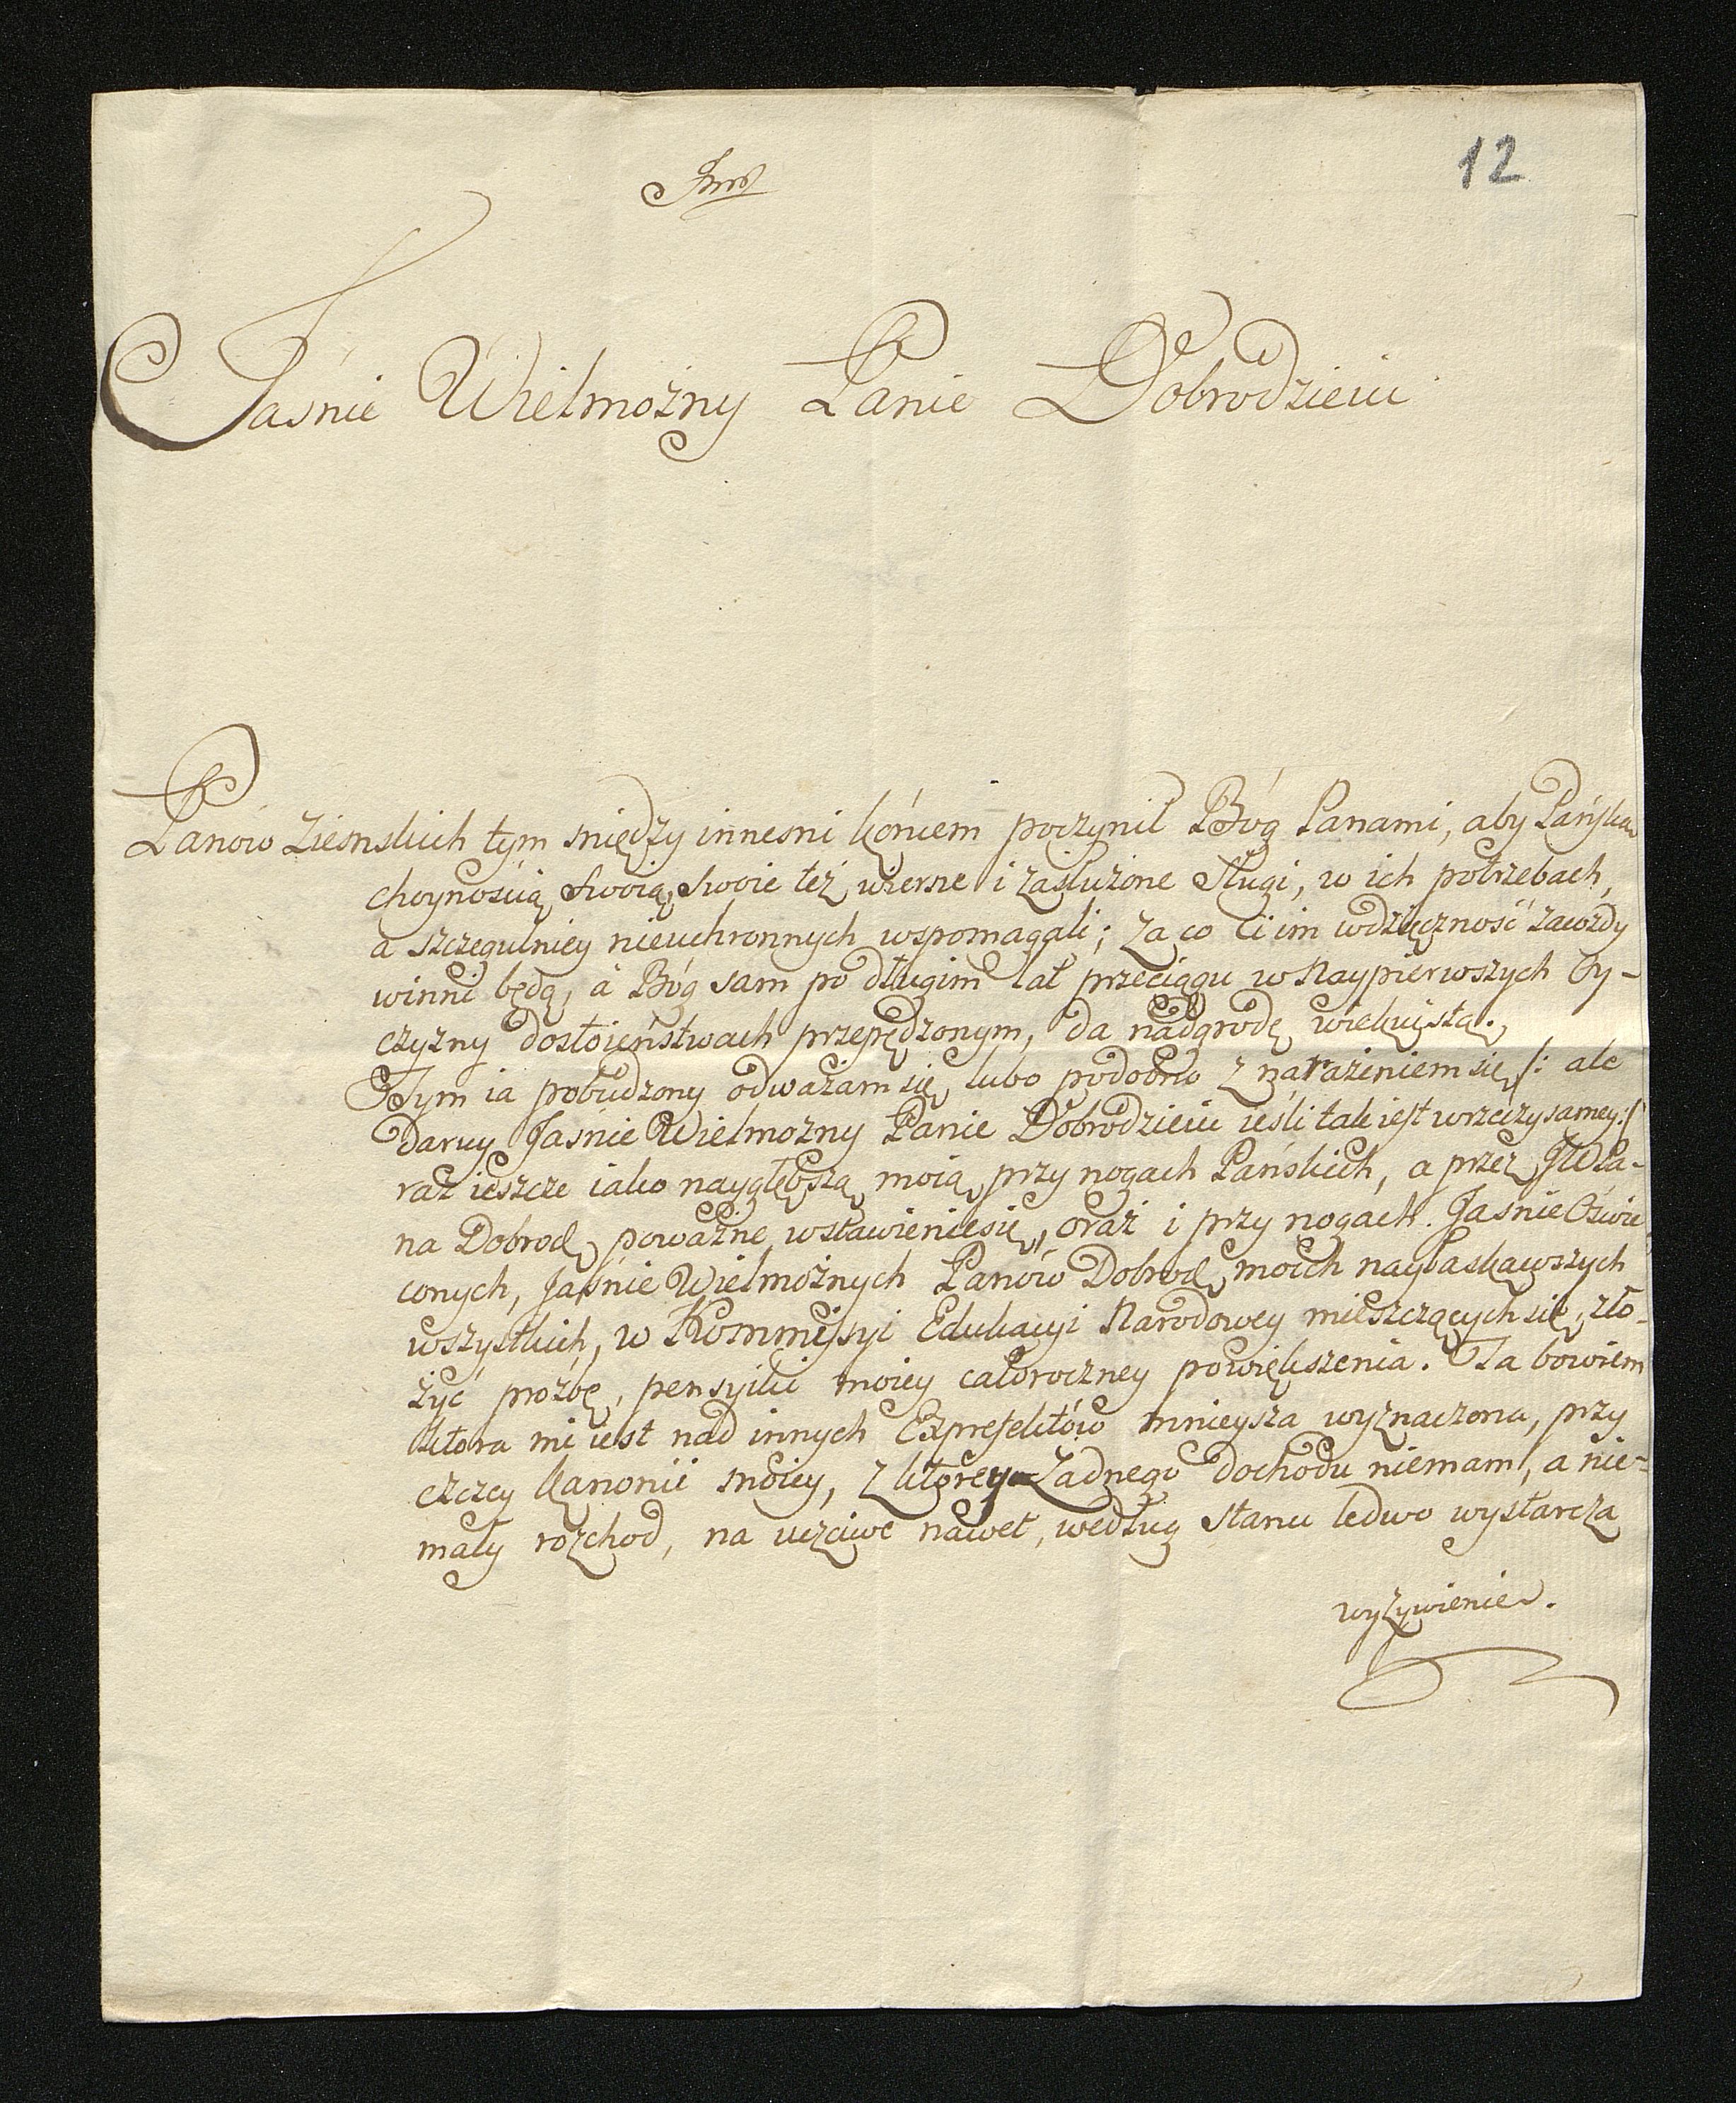 12
Jaśnie Wielmożny Panie Dobrodzieiu
Panów ziemskich tym między innemi końcem poczynił Bóg Panami, aby Pańską
choynością swoią, swoie też wierne i zasłużone sługi, w ich potrzebach,
a szczegulniey nieuchronnych wspomagali; za co ci im wdzięczność zawżdy
winni będą, à Bóg sam po długim lat przeciągu w naypierwszych Oy-
czyzny dostoieństwach przepędzonym, da nadgrodę wiekuistą.
Tym ia pobudzony odważam się, lubo podobno z narażeniem się /: ale
daruy Jaśnie Wielmożny Panie Dobrodzieiu ieśli tak iest wrzeczy samey :/
raz ieszcze iako naygłębszą moią, przy nogach Pańskich, a przez JW Pa-
na Dobrod. poważne wstawienie się, oraz i przy nogach Jaśnie Oświe
conych, Jaśnie Wielmożnych Panów Dobrod. moich nayłaskawszych
wszystkich, w Kommissyi Edukacyi Narodowey mieszczących się, zło-
żyć prożbę, pensyiki moiey całoroczney powiększenia. Ta bowiem
ktora mi iest nad innych Exprefektów mnieysza wyznaczona, przy
czczey kanonii moiey, z ktorey żadnego dochodu niemam, a nie-
mały rozchod, na uczciwe nawet, według stanu ledwo wystarcza
wyżywienie.